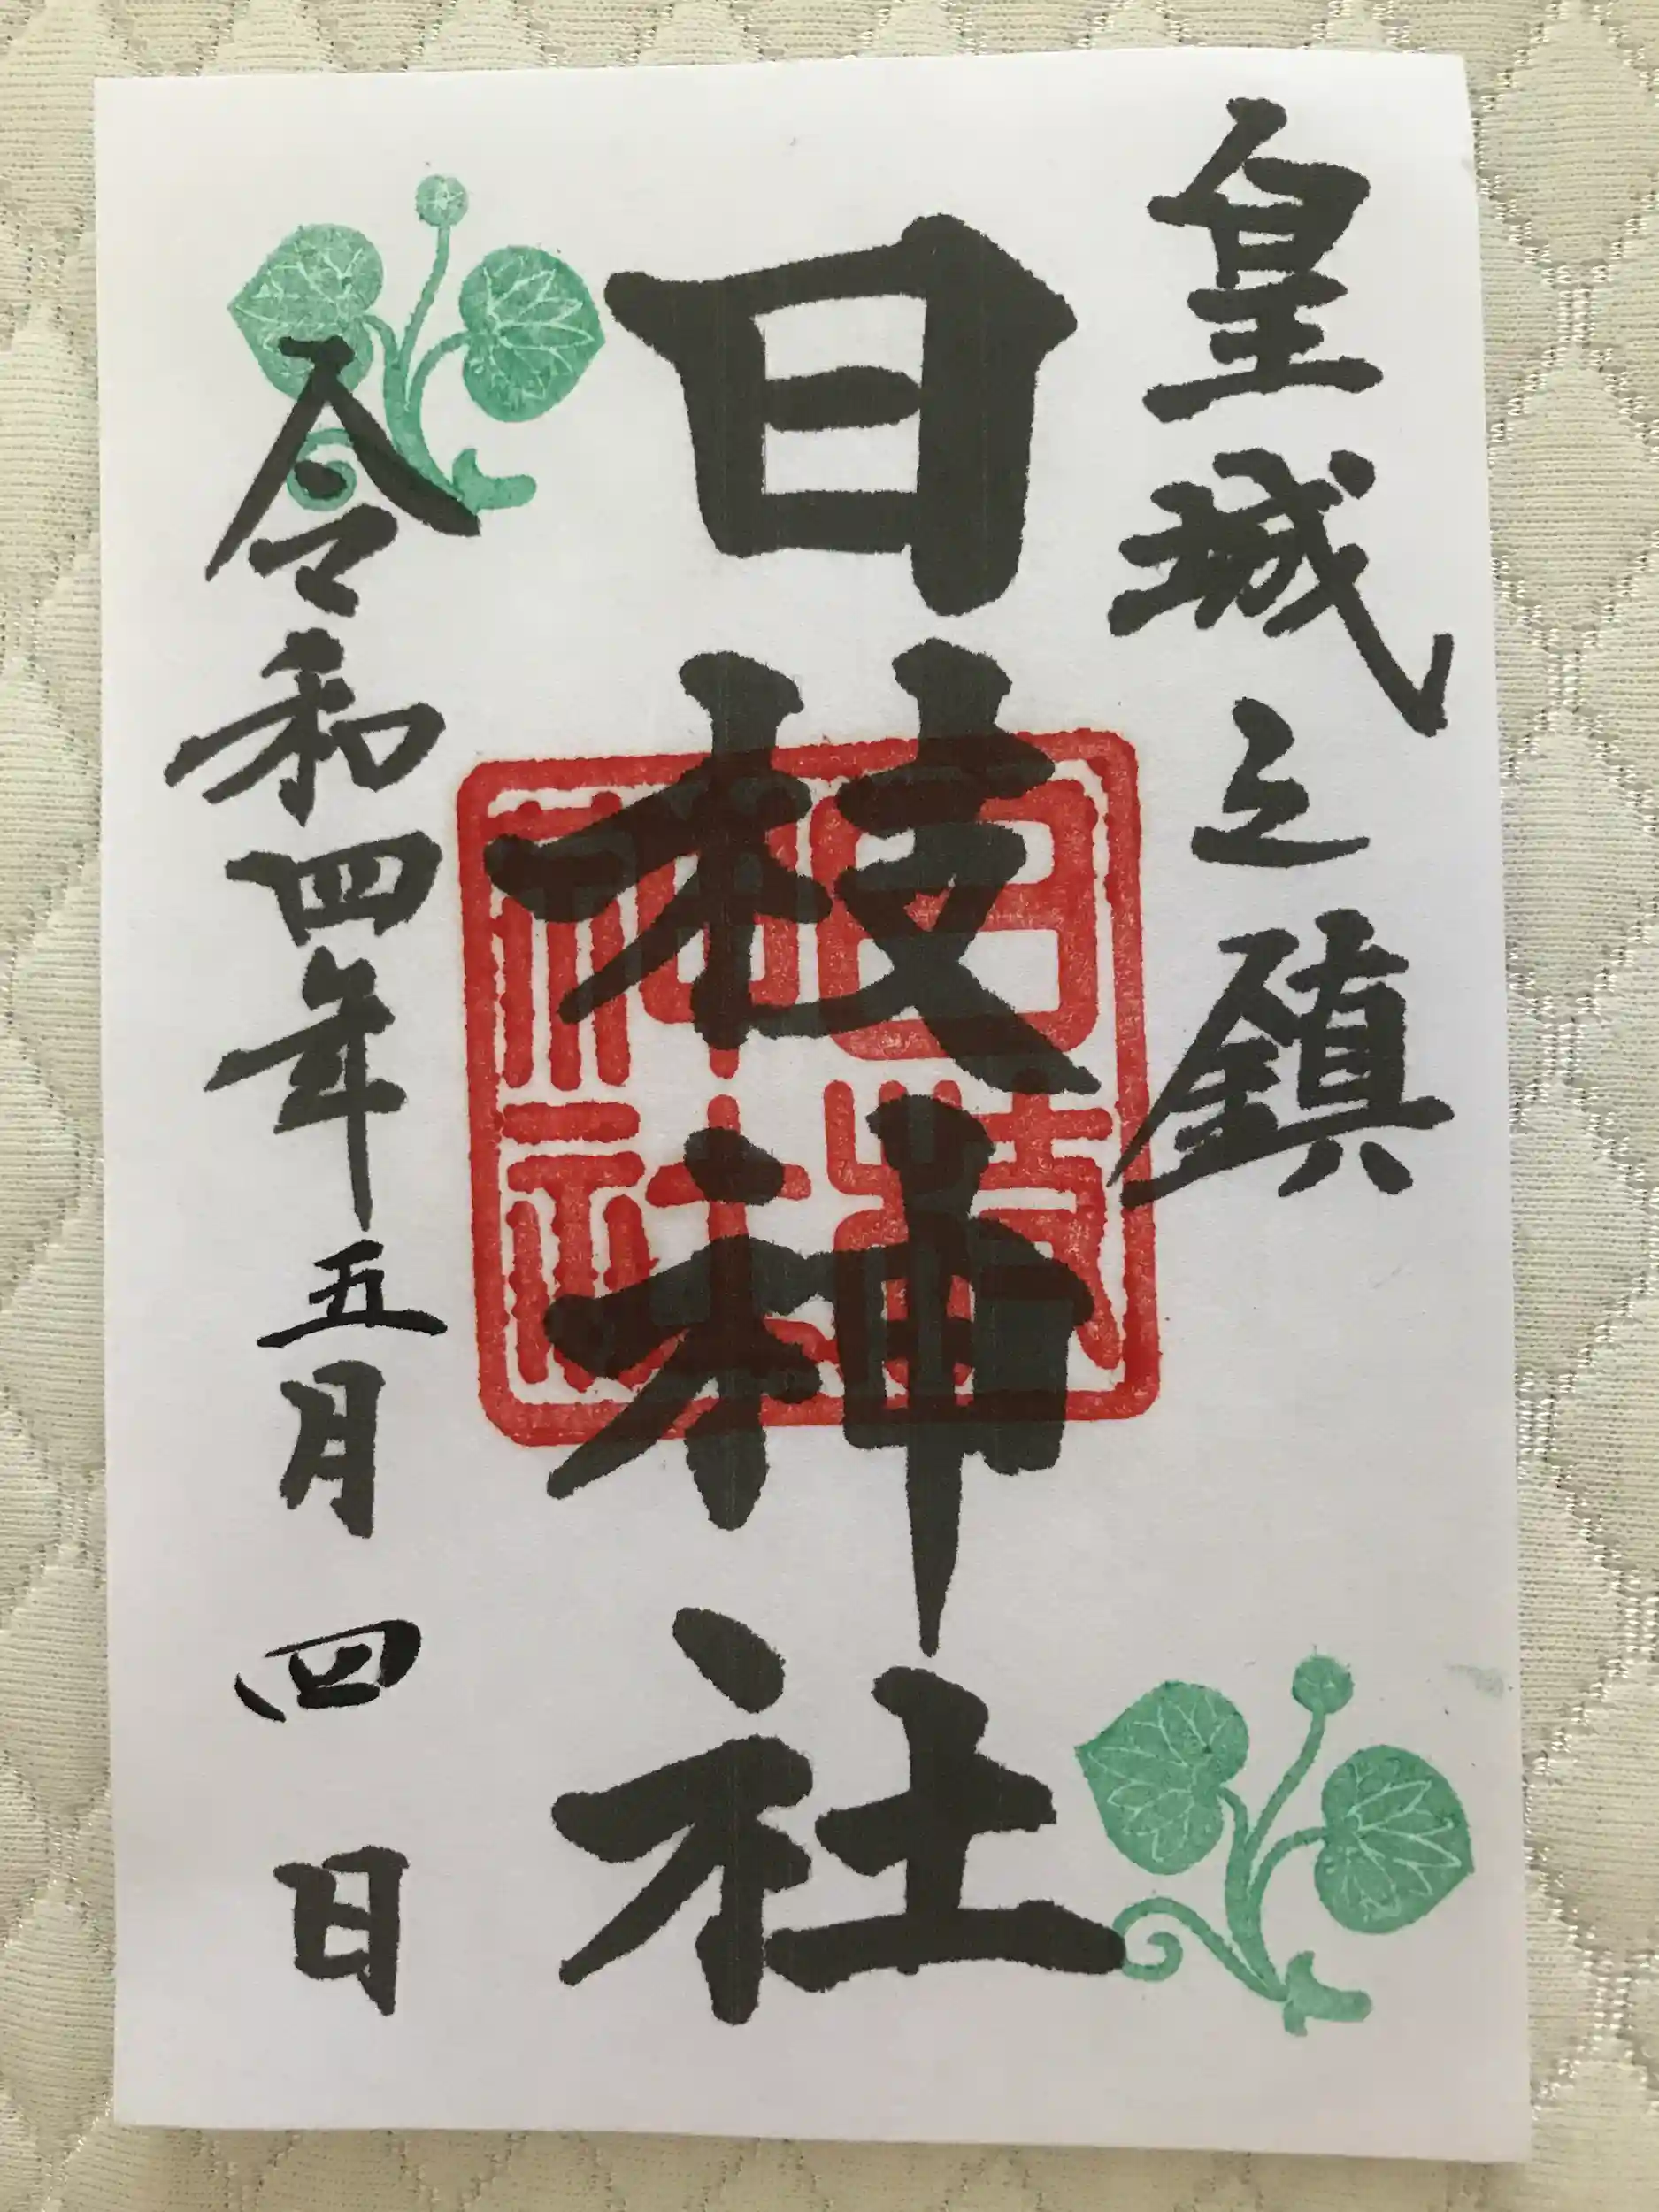 皇城之鎮
日枝神社
日枝神社
令和四年五月四日